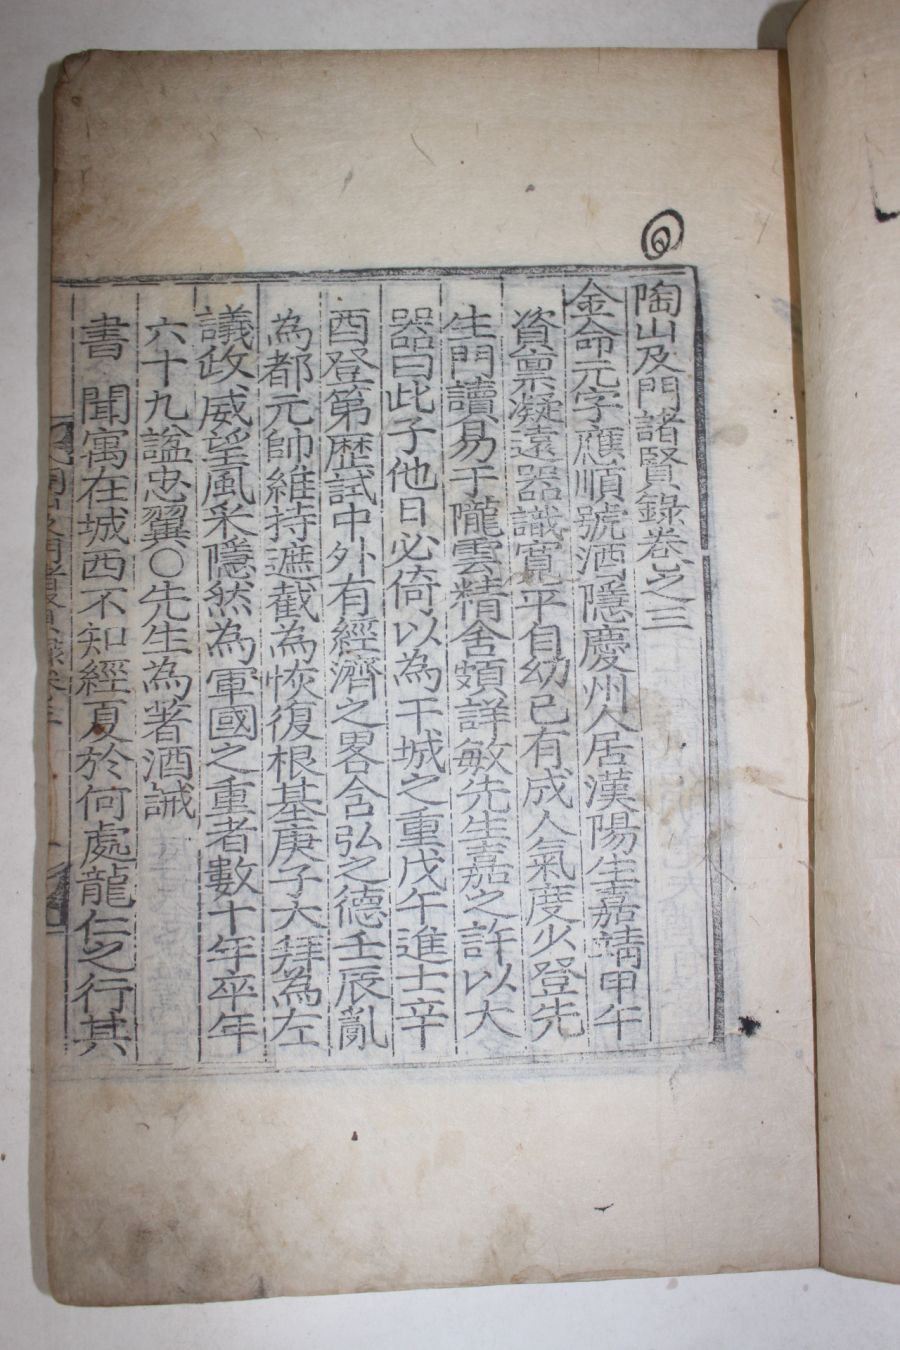 陶山及門諸賢錄卷之三
金命元字應順號酒隱慶州人居漢陽生嘉靖甲午
資禀凝遠器識寬平自幼已有成人氣度少登先
生門讀易于隴雲精舍頗詳敏先生嘉之許以大
器曰此子他日必倚以為干城之重戊午進士辛
酉登第歷試中外有經濟之畧含弘之德壬辰亂
為都元帥維持遮截為恢復根基庚子大拜為左
議政威望風采隱然為軍國之重者數十年卒年
六十九諡忠翼○先生為著酒誡
書 聞寓在城西不知經夏於何處龍仁之行其